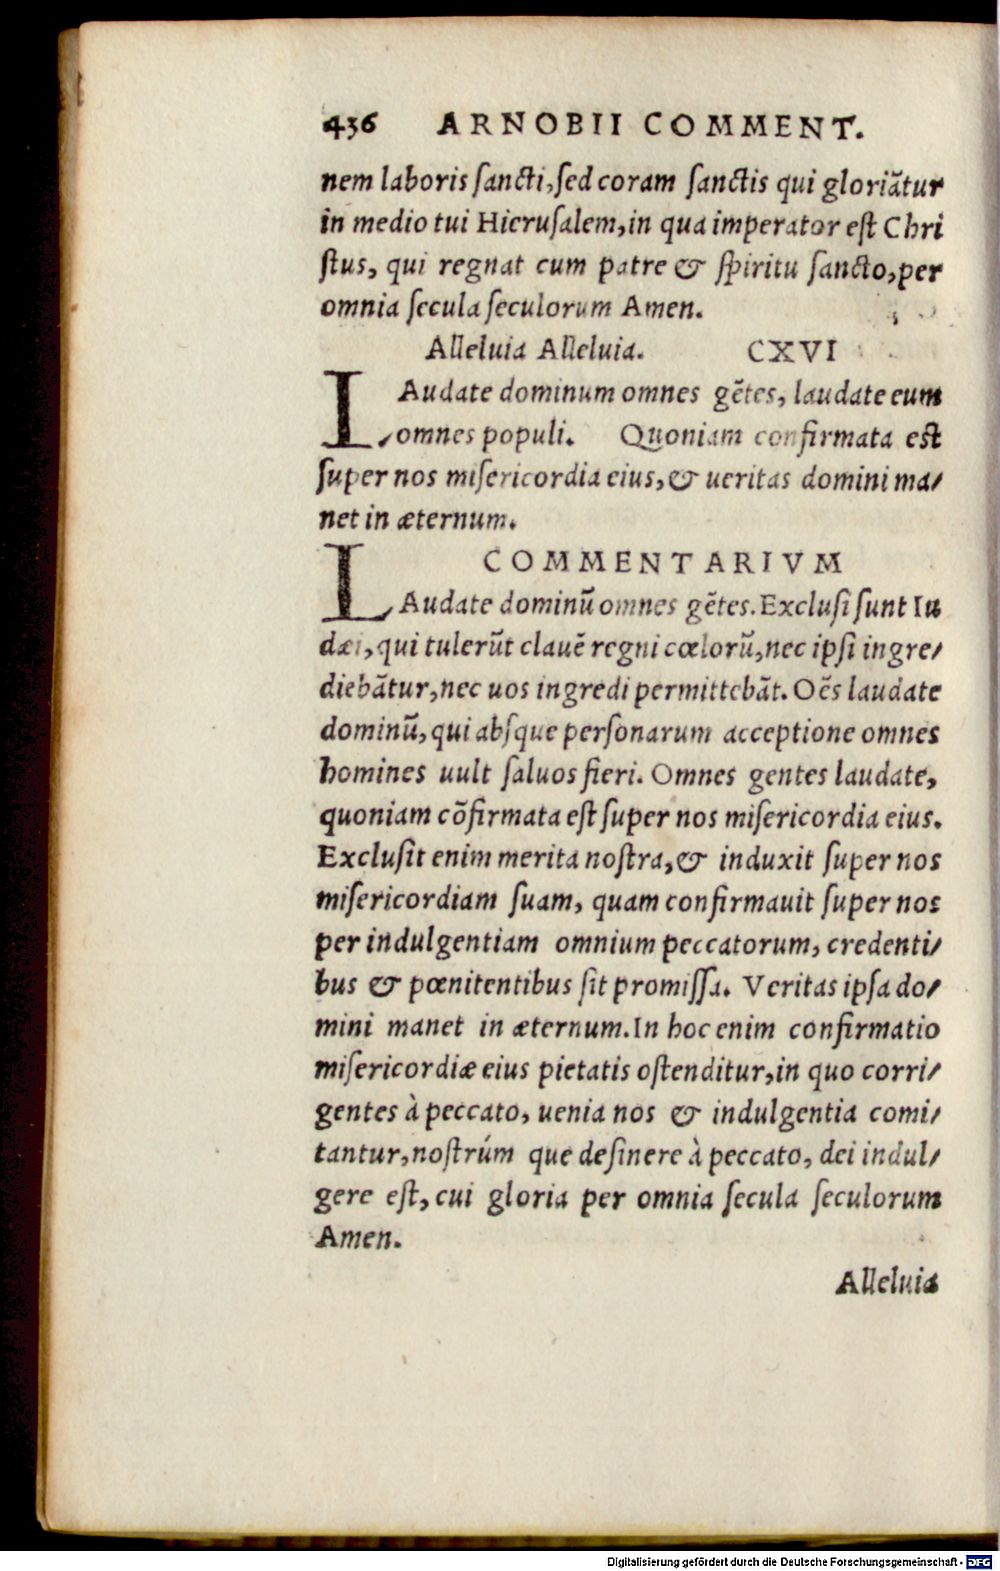 436 ARNOBII COMMENT.
nem laboris ſancti, ſed coram ſanctis qui gloriãtur
in medio tui Hieruſalem, in qua imperator eſt Chri
ſtus, qui regnat cum patre & ſpiritu ſancto, per
omnia ſecula ſeculorum Amen.
Alleluia Alleluia. CXVI
LAudate dominum omnes gẽtes, laudate eum
omnes populi. Quoniam confirmata eſt
ſuper nos miſericordia eius, & ueritas domini ma/
net in æternum.
COMMENTARIVM
LAudate dominũ omnes gẽtes. Excluſi ſunt Iu
dæi, qui tulerũt clauẽ regni cœlorũ, nec ipſi ingre/
diebãtur, nec uos ingredi permittebãt. Oẽs laudate
dominũ, qui abſque perſonarum acceptione omnes
homines uult ſaluos fieri. Omnes gentes laudate,
quoniam cõfirmata eſt ſuper nos miſericordia eius.
Excluſit enim merita noſtra, & induxit ſuper nos
miſericordiam ſuam, quam confirmauit ſuper nos
per indulgentiam omnium peccatorum, credenti/
bus & pœnitentibus ſit promiſſa. Veritas ipſa do/
mini manet in æternum. In hoc enim confirmatio
miſericordiæ eius pietatis oſtenditur, in quo corri/
gentes à peccato, uenia nos & indulgentia comi/
tantur, noſtrúm que deſinere à peccato, dei indul/
gere eſt, cui gloria per omnia ſecula ſeculorum
Amen.
Alleluia
Digitalisierung gefördert durch die Deutsche Forschungsgemeinschaft - DFG